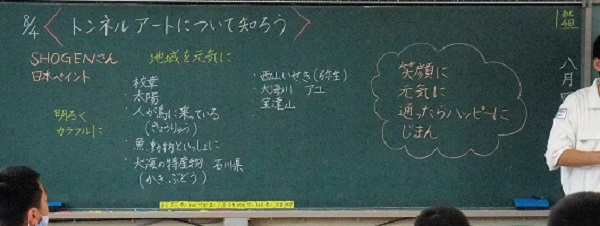 8/4 〈トンネルアートについて知ろう〉
SHOGENさん
日本ペイント
地域を元気に
明るく
カラフルに
校章
・太陽
・人が鳥に乗っている
(きょうりゅう)
・魚、動物といっしょに
・大海の特産物 石川県
(かき、ぶどう)
・西山いせき(弥生)
・大海川 アユ
・宝達山
笑顔に
元気に
通ったらハッピーに
じまん
八月